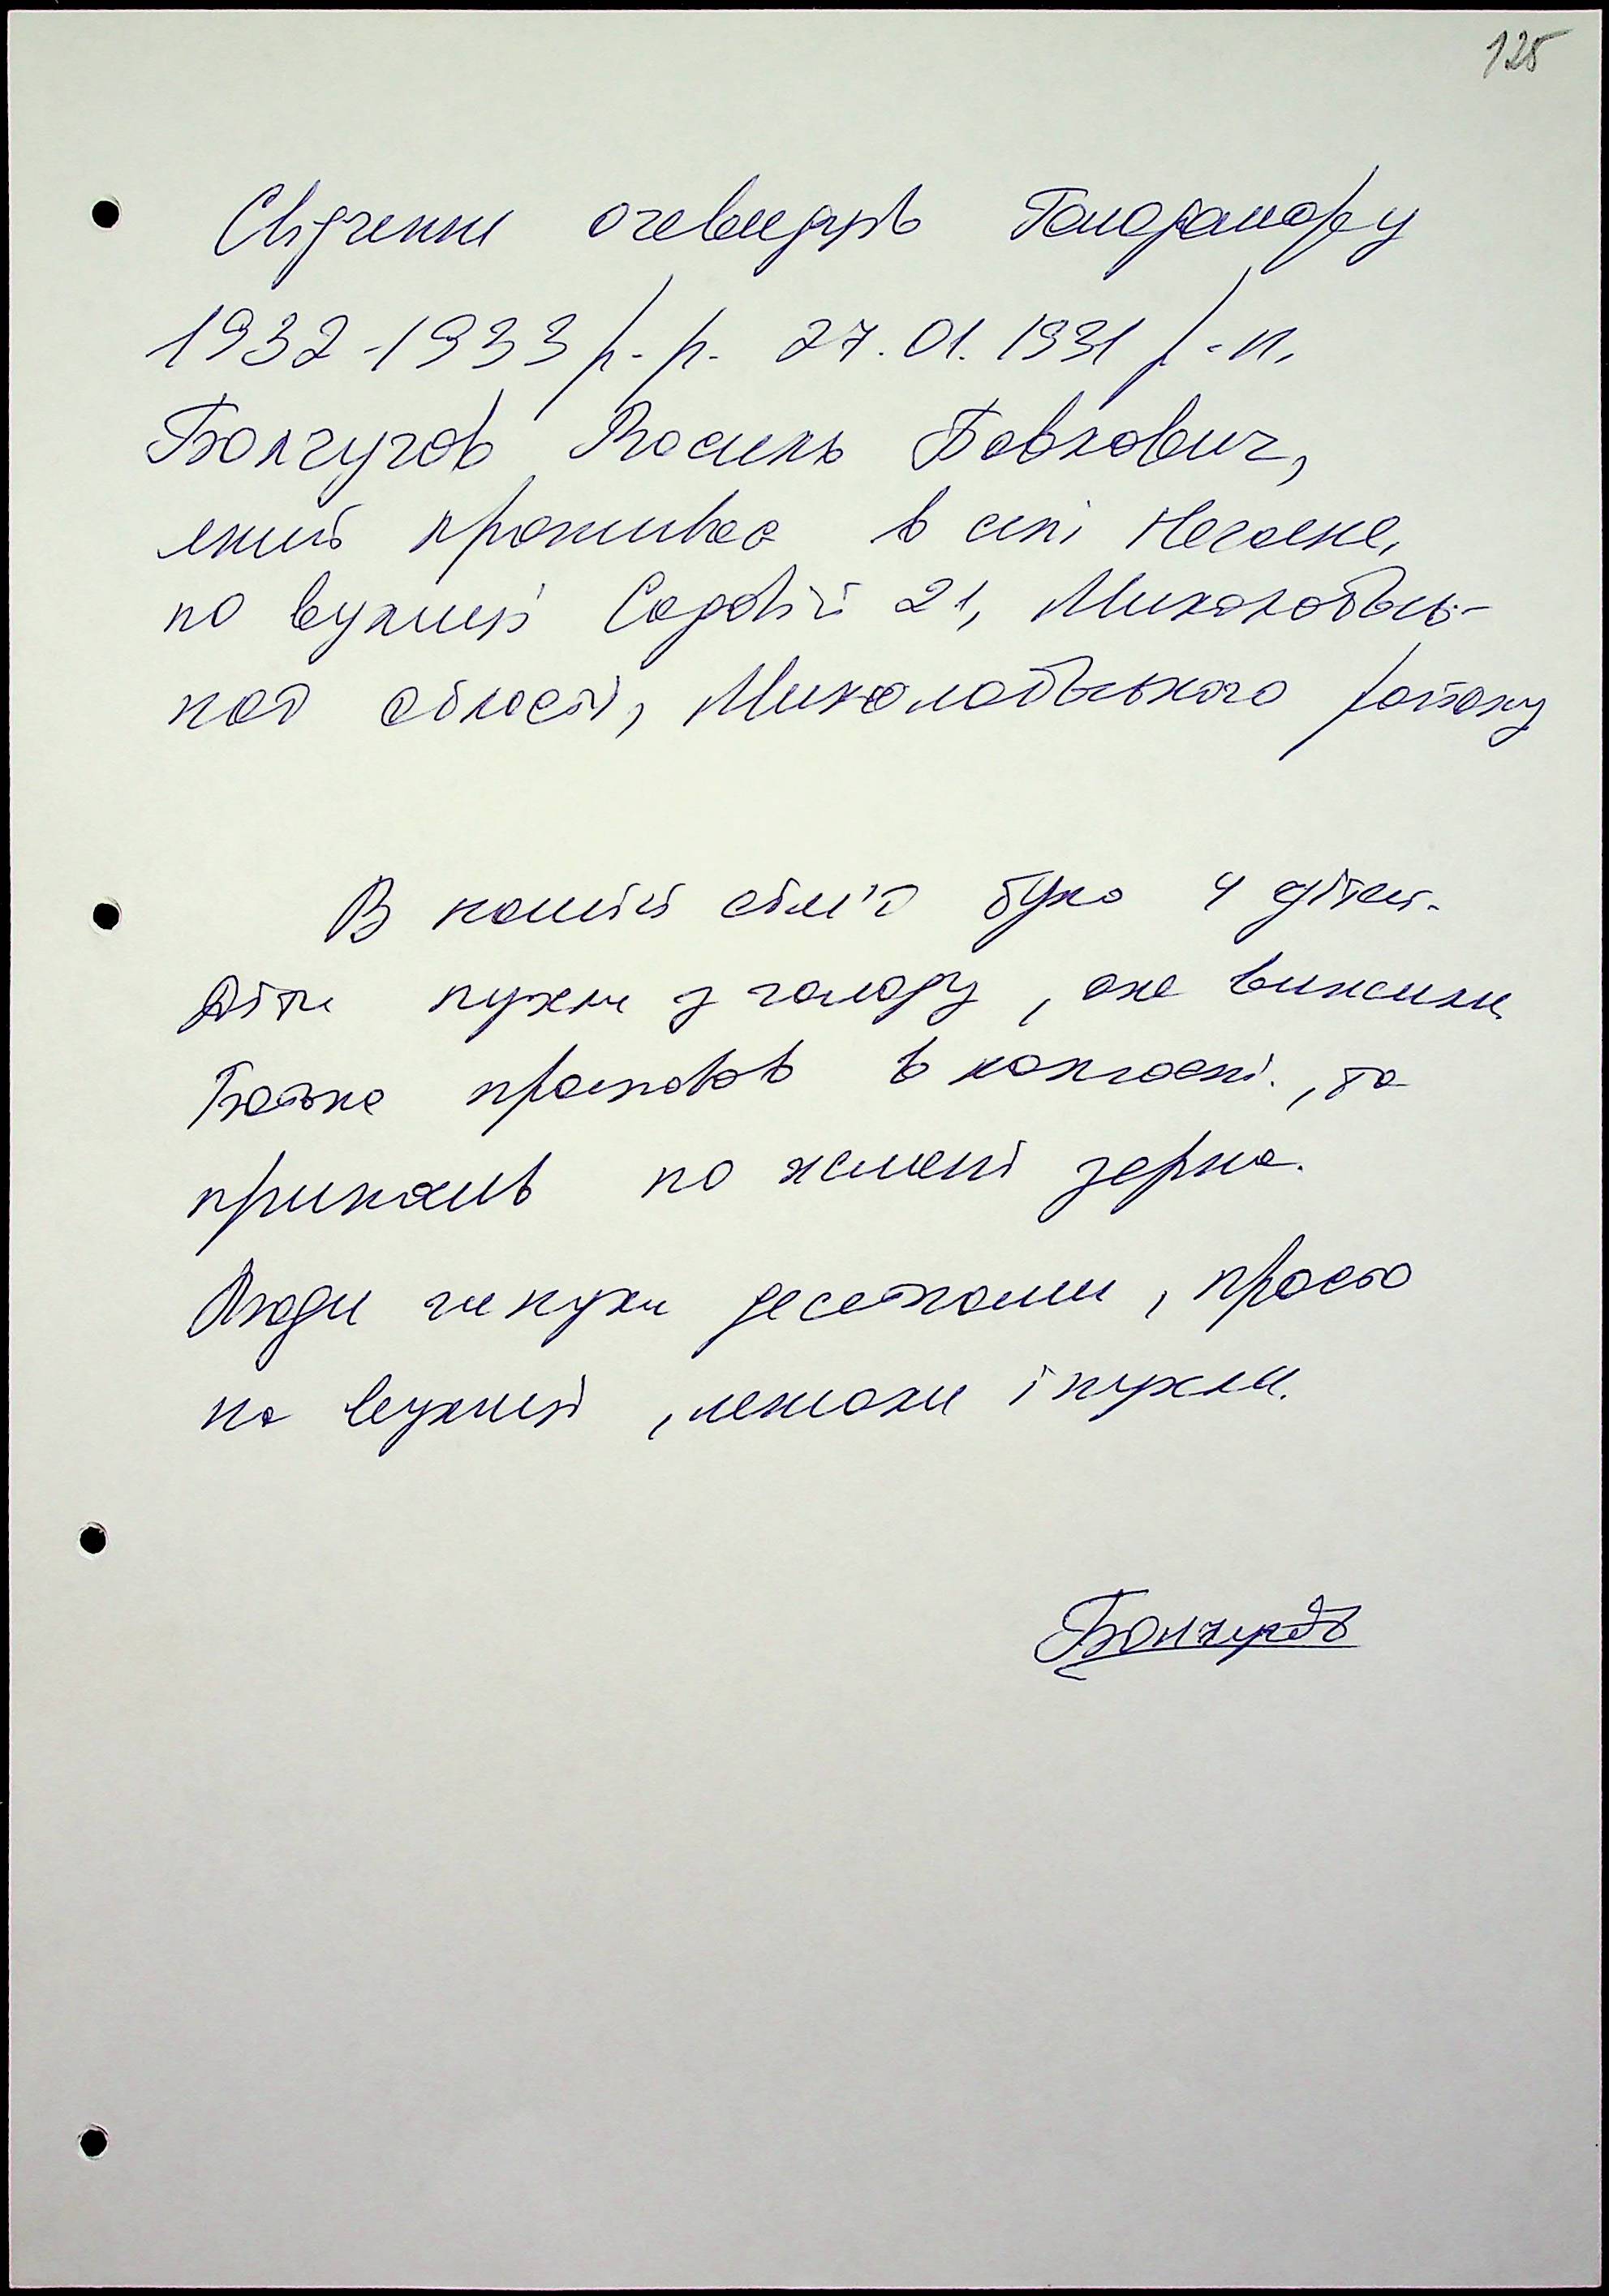 125
Свідчення очевидців Голодомору
1932-1933 р.р. 27.01.1931 р.н.
Болгугов Василь Павлович,
який проживає в селі Нечаяне,
по вулиці Садовій 21, Миколаївсь-
кої області, Миколаївського району
В нашій сім'ї було 4 дітей.
Діти пухли з голоду, але вижили
Батько працював в колгоспі, та
приносив по жмені зерна.
Люди гинули десятками, просто
на вулиці, лежали і пухли.